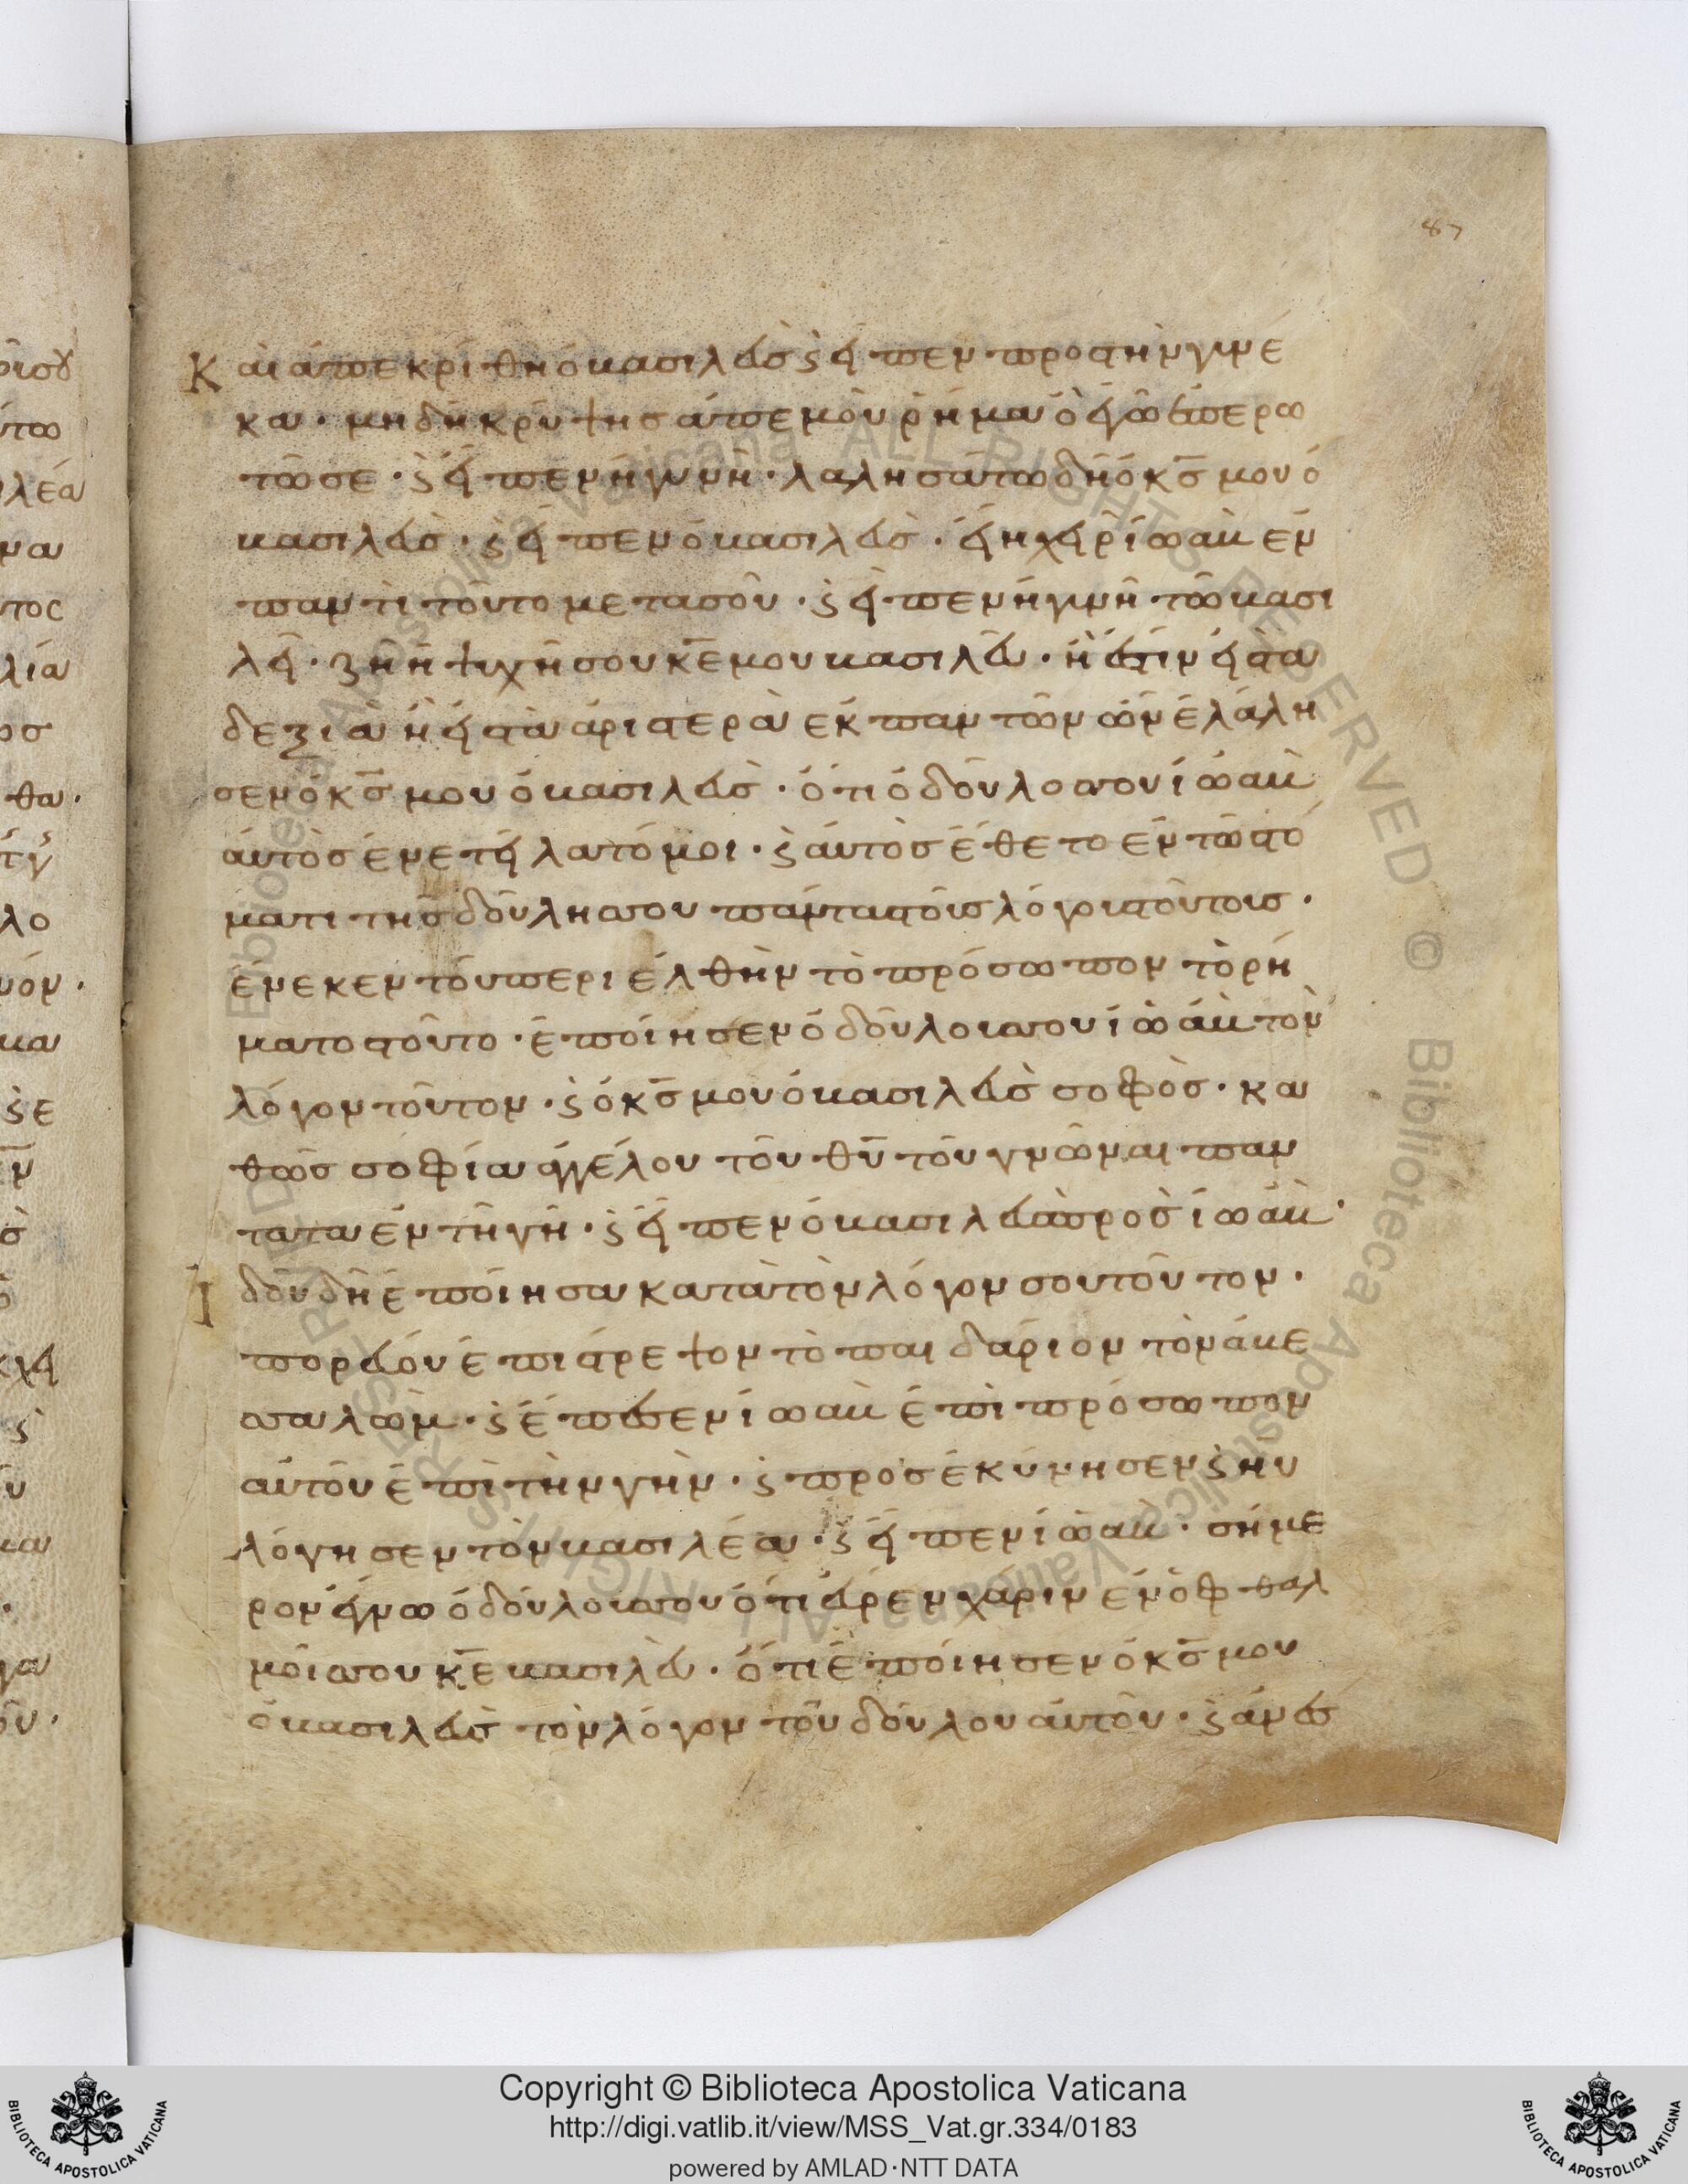 87
Καὶ ἀπεκρίθη ὁ βασιλεὺς ϛ̀ εἶπεν πρὸς τὴν γυνε
κα · μὴ δὴ κρύψης ἀπ ἐμοῦ ρῆμα ὃ ἐγὼ ἐπερω
τῶ σε · ϛ̀ εἶπεν ἡ γυνὴ · λαλησάτω δὴ ὁ κ̅ς̅ μου ὁ
βασιλεὺς · ϛ̀ εἶπεν ὁ βασιλεὺς · εἰ ἡ χεὶρ ἰωὰβ ἐν
παντὶ τούτο μετα σοῦ · ϛ̀ εἶπεν ἡ γυνὴ τῶ βασι
λεῖ · ζῆ ἡ ψυχή σου κ̅ε̅ μου βασιλεῦ · εἰ ἔστιν εἰς τὰ
δεξιὰ ἢ εἰς τὰ ἀριστερὰ ἐκ παντῶν ὧν ἐλάλη
σεν ὁ κ̅ς̅ μου ὁ βασιλεὺς · ὅτι ὁ δοῦλος σου ἰωὰβ
αὐτὸς ἐνετείλατό μοι · ϛ̀ αὐτὸς ἔθετο ἐν τῶ στό
ματι τῆς δούλης σου πάντας τοὺς λόγους τούτους ·
ἕνεκεν τοῦ περιελθὴν τὸ πρόσωπον τὸ ρή
ματος τοῦτο · ἐποίησεν ὁ δοῦλος σου ἰωὰβ τὸν
λόγον τοῦτον · ϛ̀ ὁ κ̅ς̅ μου ὁ βασιλεὺς σοφὸς · κα
θῶς σοφία ἀγγέλου τοῦ θ̅υ̅ τοῦ γνῶναι παν
τατα ἐν τῆ γῆ · ϛ̀ εἶπεν ὁ βασιλεὺς προς ἰωὰβ ·
Ἰδοὺ δὴ ἐποίησα κατὰ τὸν λόγον σου τοῦτον ·
πορεύου ἐπίστρεψον τὸ παιδάριον τὸν ἀβε
σσαλώμ · ϛ̀ ἔπεσεν ἰωὰβ ἐπὶ πρόσωπον
αὐτοῦ ἐπὶ τὴν γὴν · ϛ̀ προσεκύνησεν ϛ̀ ηὐ
λόγησεν τὸν βασιλέα · ϛ̀ εἶπεν ἰωὰβ · σήμε
ρον ἔγνω ὁ δοῦλος σου ὅτι εὗρεν χάριν ἐν ὀφθαλ
μοῖς σου κ̅ε̅ βασιλεῦ · ὅτι ἐποίησεν ὁ κ̅ς̅ μου
ὁ βασιλεὺς τὸν λόγον τοῦ δούλου αὐτοῦ · ϛ̀ ἀνέσ
Copyright © Biblioteca Apostolica Vaticana
http://digi.vatlib.it/view/MSS_Vat.gr.334/0183
powered by AMLAD·NTT DATA